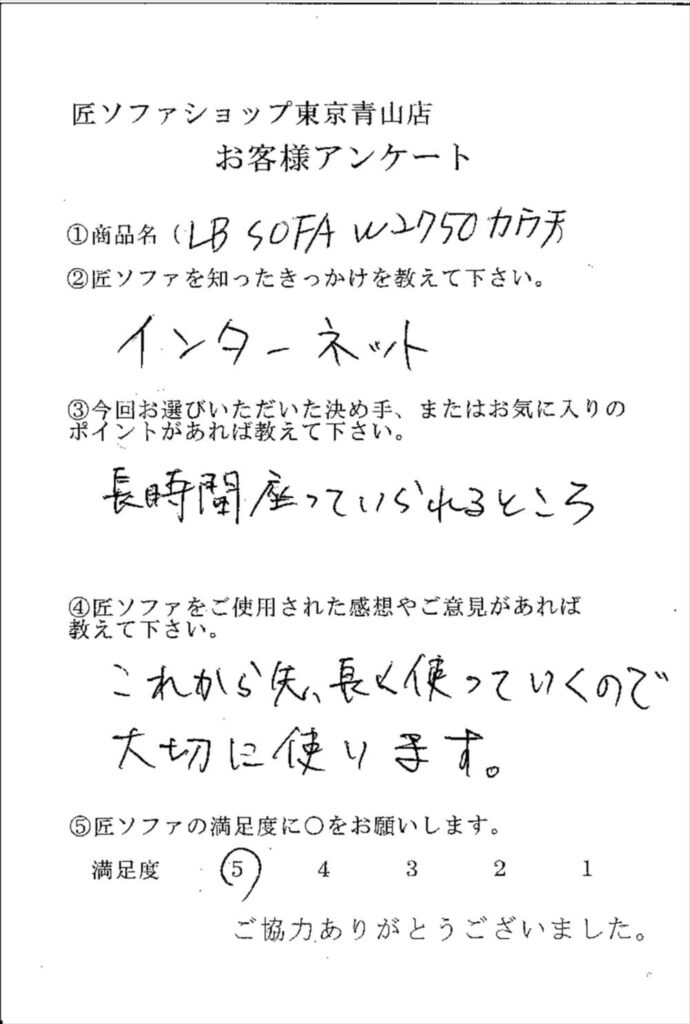 匠ソファショップ東京青山店
お客様アンケート
①商品名（LB SOFA W2750 カウチ
②匠ソファを知ったきっかけを教えて下さい。
インターネット
③今回お選びいただいた決め手、またはお気に入りの
ポイントがあれば教えて下さい。
長時間座っていられるところ
④匠ソファをご使用された感想やご意見があれば
教えて下さい。
これから先、長く使っていくので
大切に使います。
⑤匠ソファの満足度に〇をお願いします。
満足度 5 4 3 2 1
ご協力ありがとうございました。